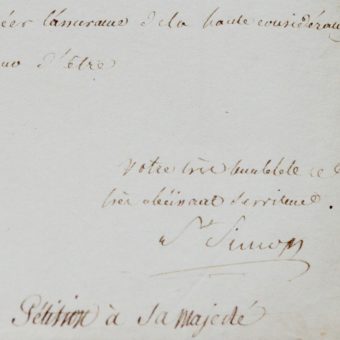 éer l'assurance d la haute considérati
uo d'Etre
votre très humble et
très obéissant serviteur.
St Simon
Pétition à Sa Majesté